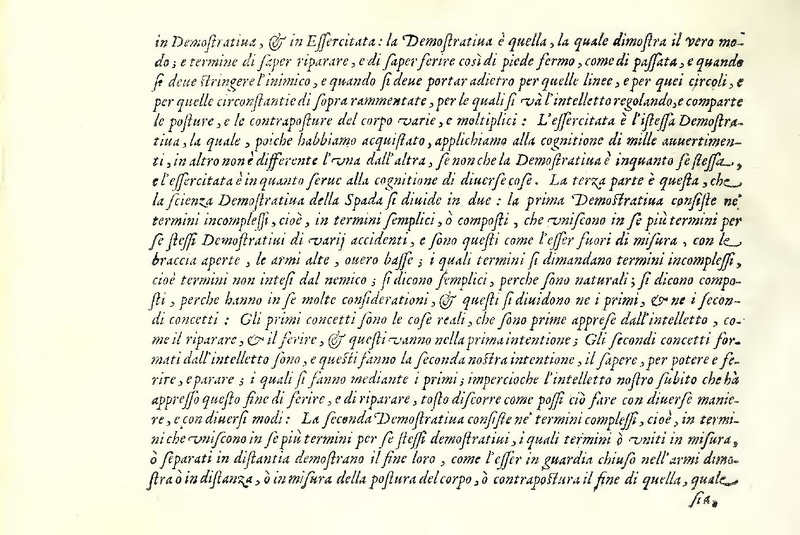 in Demoſtratiua, & in Eſſercitata: la Demoſtratiua è quella, la quale dimoſtra il vero mo-
do; e termine di ſaper riparare, e di ſaper ferire così di piede fermo, come di paſſata, e quando
ſi deue ſtringere l'inimico, e quando ſi deue portar adietro per quelle linee, e per quei circoli, e
per quelle circonſtantie di ſopra rammentate, per le quali ſi và l'intelletto regolando, e comparte
le poſture, e le contrapoſture del corpo varie, e moltiplici: L'eſſercitata è l'iſteſſa Demoſtra-
tiua, la quale, poiche habbiamo acquiſtato, applichiamo alla cognitione di mille auuertimen-
ti, in altro non è differente l'vna dall'altra, ſe non che la Demoſtratiua è inquanto ſe ſteſſa,
e l'eſſercitata è in quanto ſerue alla cognitione di diuerſe coſe. La terza parte è queſta, che
la ſcienza Demoſtratiua della Spada ſi diuide in due: la prima Demoſtratiua conſiſte ne'
termini incompleſſi, cioè, in termini ſemplici, ò compoſti, che vniſcono in ſe più termini per
ſe ſteſſi Demoſtratiui di varij accidenti, e ſono queſti come l'eſſer fuori di miſura, con le
braccia aperte, le armi alte, ouero baſſe; i quali termini ſi dimandano termini incompleſſi,
cioè termini non inteſi dal nemico; ſi dicono ſemplici, perche ſono naturali; ſi dicono compo-
ſti, perche hanno in ſe molte conſiderationi, & queſti ſi diuidono ne i primi, & ne i ſecon-
di concetti: Gli primi concetti ſono le coſe reali, che ſono prime appreſe dall'intelletto, co-
me il riparare, & il ferire, & queſti vanno nella prima intentione; Gli ſecondi concetti for-
mati dall'intelletto ſono, e queſti fanno la ſeconda noſtra intentione, il ſapere, per potere e fe-
rire, e parare; i quali ſi fanno mediante i primi; impercioche l'intelletto noſtro ſubito che hà
appreſſo queſto fine di ferire, e di riparare, toſto diſcorre come poſſi ciò fare con diuerſe manie-
re, e con diuerſi modi: La ſeconda Demoſtratiua conſiſte ne' termini compleſſi, cioè, in termi-
ni che vniſcono in ſe più termini per ſe ſteſſi demoſtratiui, i quali termini ò vniti in miſura,
ò ſeparati in diſtantia demoſtrano il fine loro, come l'eſſer in guardia chiuſo nell'armi dimo-
ſtra ò in diſtanza, ò in miſura della poſtura del corpo, ò contrapoſtura il fine di quella, quale
ſia,